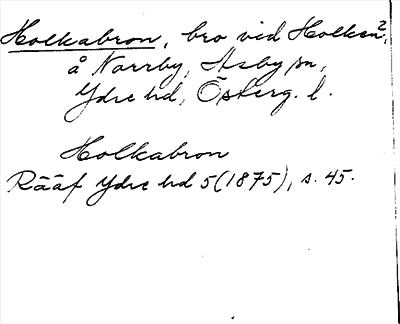 Holkabron, bro vid Holken ²,
å Norrby, Asby sn,
Ydre hd, Österg. l.
Holkabron
Rääf Ydre hd 5 (1875), s. 45.